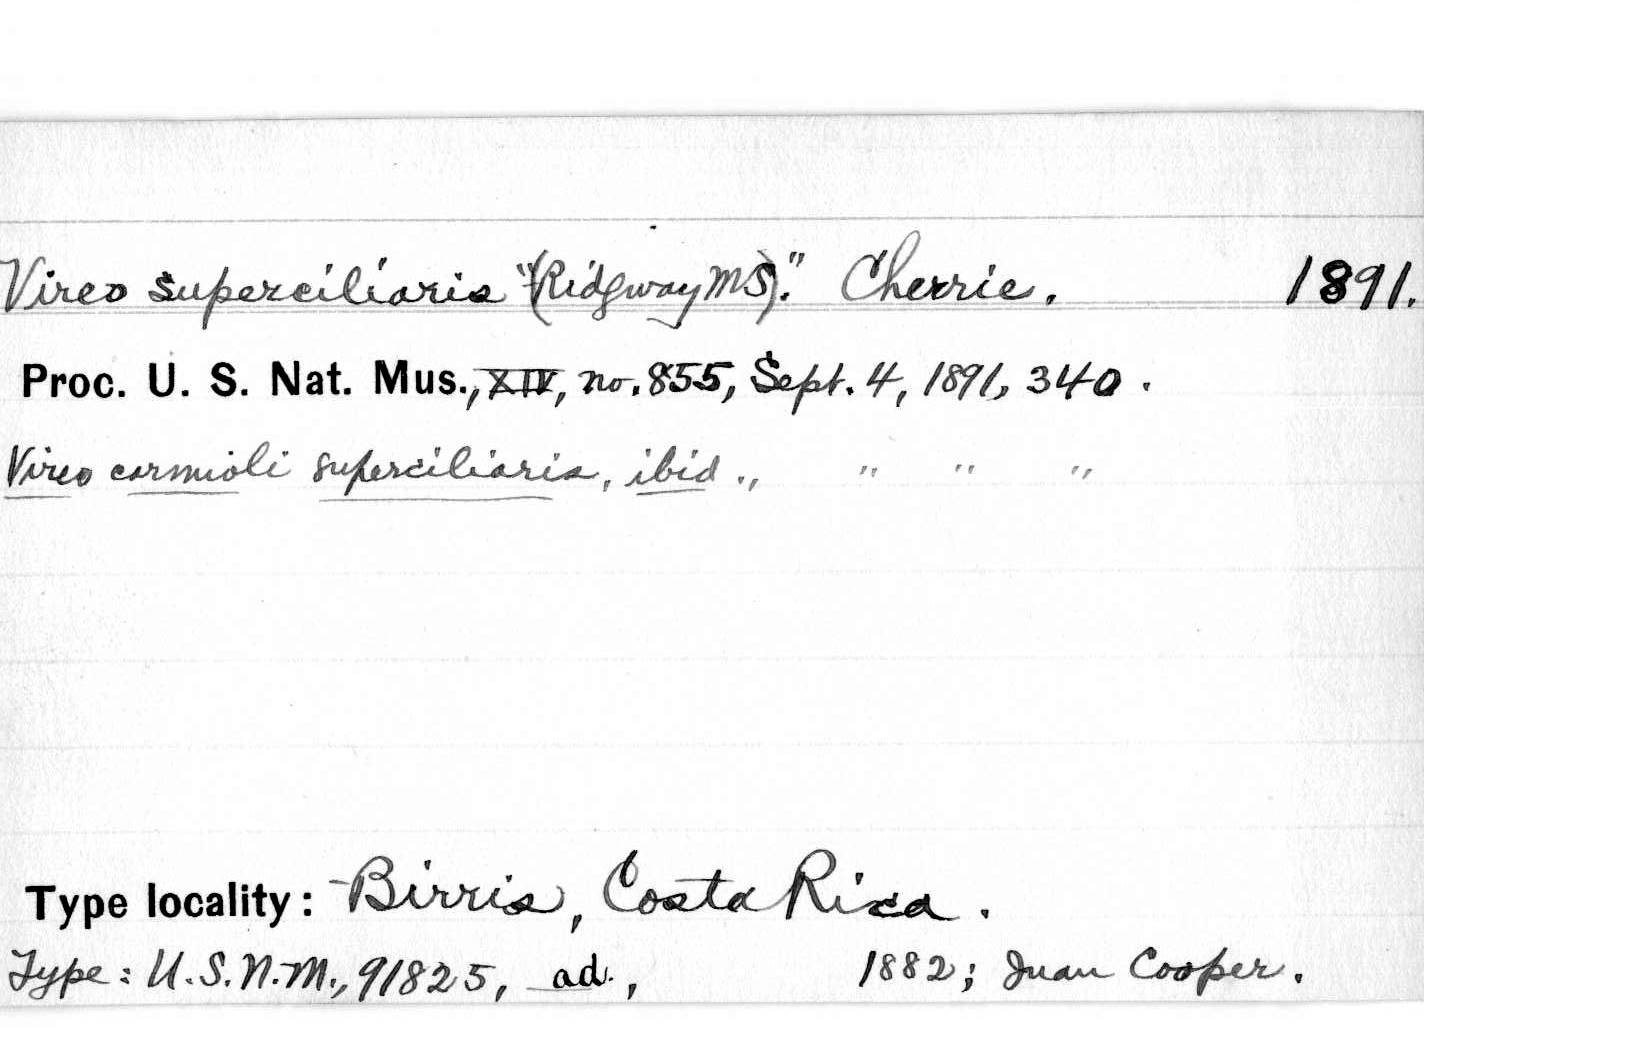 Vireo superciliaris "(Ridgway MS)." Cherrie. 1891.
Proc. U. S. Nat. Mus., XIV, no. 855, Sept. 4, 1891, 340.
Vireo carmioli superciliaris, ibid., " " "
Type locality: Birris, Costa Rica.
Type: U.S.N.M., 91825, ad., 1882; Juan Cooper.